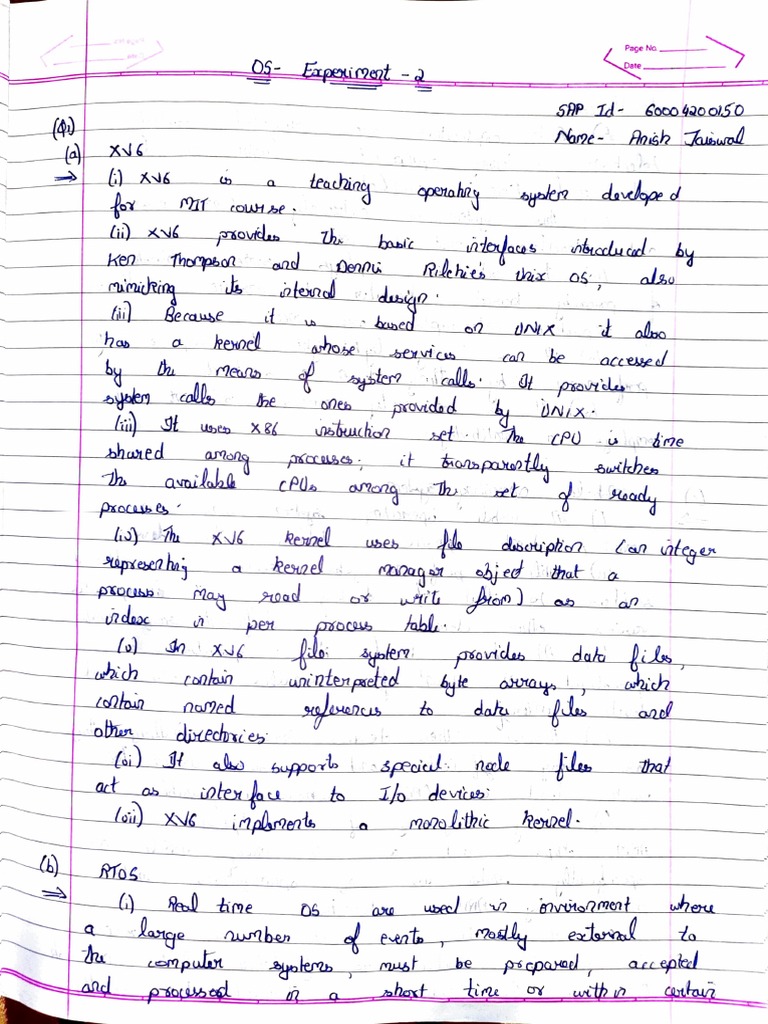 Page No.
Date
OS- Experiment - 2
SAP Id- 60004200150
Name- Anish Jaiswal
(Q1)
(a) XV6
⇒ (i) XV6 is a teaching operating system developed
for MIT course.
(ii) XV6 provides the basic interfaces introduced by
Ken Thompson and Dennis Ritchie's Unix OS, also
mimicking its internal design.
(iii) Because it is based on UNIX it also
has a kernel whose services can be accessed
by the means of system calls. It provides
system calls the ones provided by UNIX.
(iii) It uses X86 instruction set. The CPU is time
shared among processes; it transparently switches
the available CPUs among the set of ready
processes.
(iv) The XV6 kernel uses file description (an integer
representing a kernel manager object that a
process may read or write from) as an
index in per process table.
(v) In XV6 file system provides data files,
which contain uninterpreted byte arrays, which
contain named references to data files and
other directories.
(vi) It also supports special node files that
act as interface to I/O devices.
(vii) XV6 implements a monolithic kernel.
(b) RTOS
⇒ (i) Real time OS are used in environment where
a large number of events, mostly external to
the computer systems, must be prepared, accepted
and processed in a short time or within certain